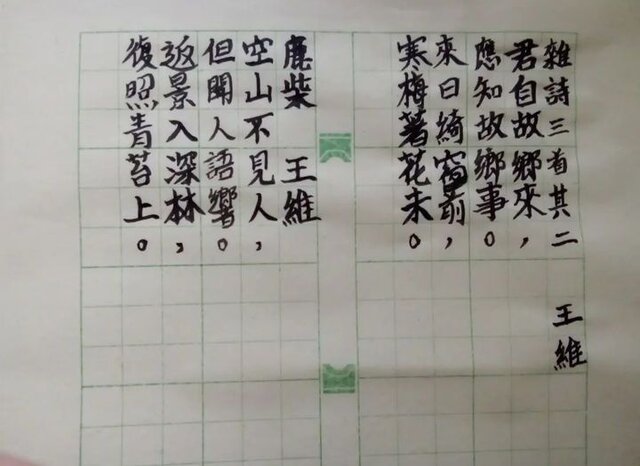 雜詩三首其二 王維
君自故鄉來，
應知故鄉事。
來日綺窗前，
寒梅著花未。
鹿柴 王維
空山不見人，
但聞人語響。
返景入深林，
復照青苔上。